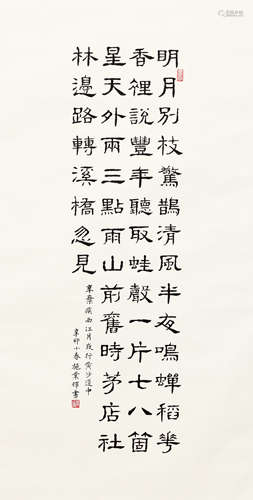 明月別枝驚鵲清風半夜鳴蟬稻花
香裡說豐年聽取蛙聲一片七八箇
星天外兩三點雨山前舊時茅店社
林邊路轉溪橋忽見
辛棄疾西江月夜行黃沙道中
辛卯小春施業煇書